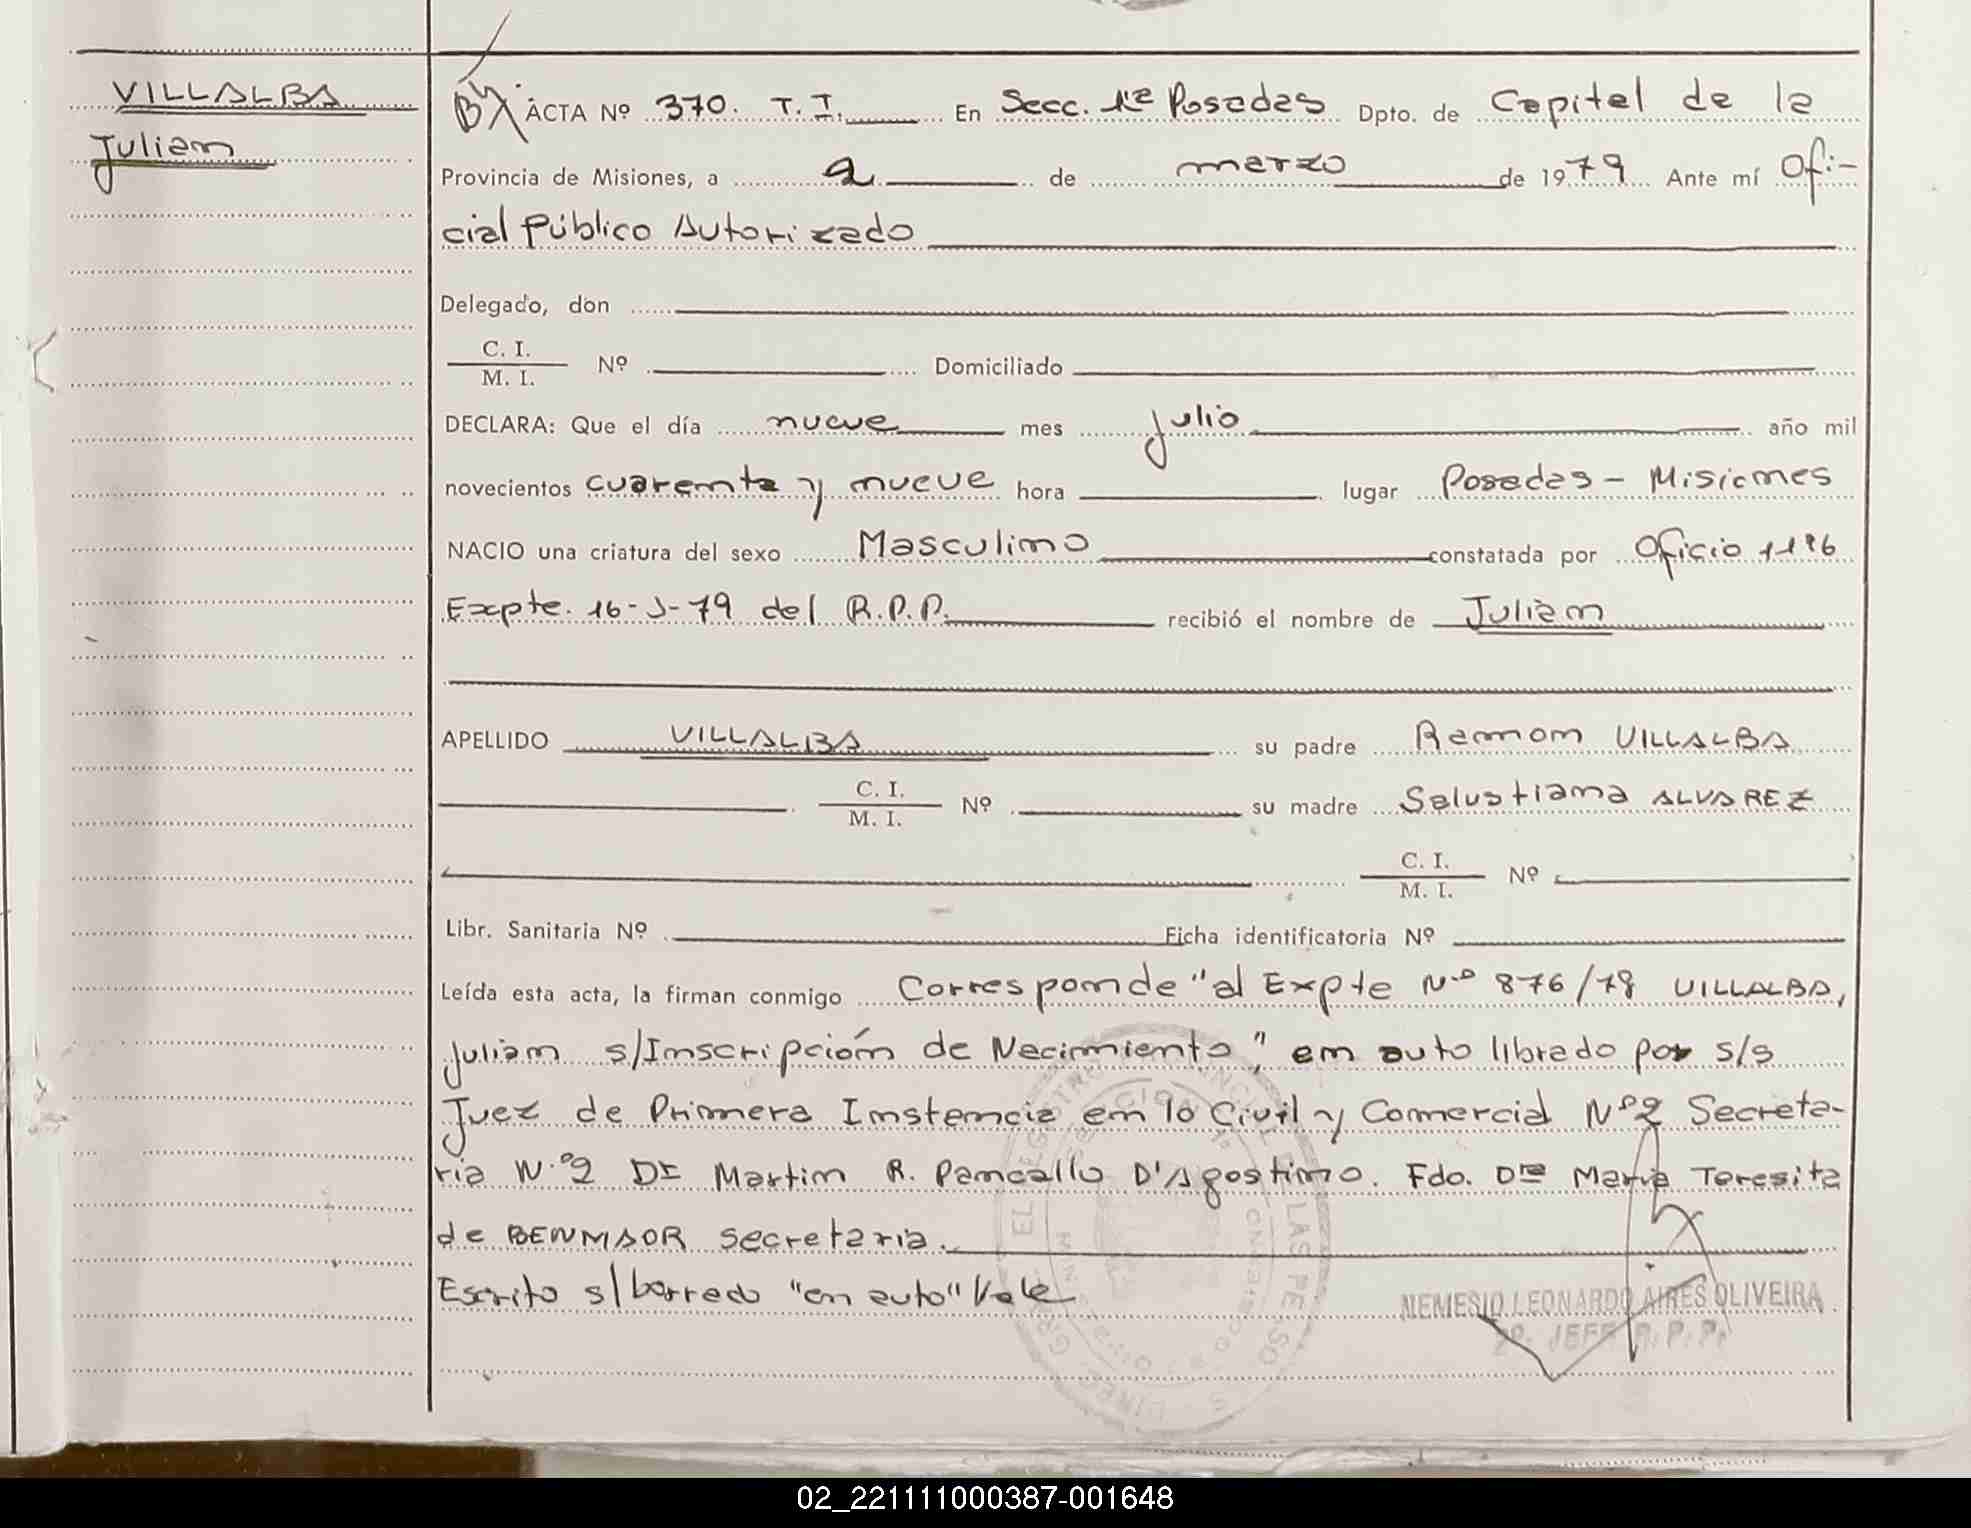 VILLALBA
Julian
ACTA Nº 370. T. I. En Secc. 1ra Posadas Dpto. de Capital de la
Provincia de Misiones, a 2 de marzo de 1979 Ante mí Ofi-
cial Público Autorizado
Delegado, don
C. I.
M. I. Nº Domiciliado
DECLARA: Que el día nueve mes julio año mil
novecientos cuarenta y nueve hora lugar Posadas - Misiones
NACIO una criatura del sexo Masculino constatada por Oficio
Expte. 16-J-79 del R.P.P. recibió el nombre de Julian
APELLIDO VILLALBA su padre Ramon VILLALBA
C. I.
M. I. Nº su madre Salustiana ALVAREZ
C. I.
M. I. Nº
Libr. Sanitaria Nº Ficha identificatoria Nº
Leída esta acta, la firman conmigo Corresponde "al Expte Nº 876/78 VILLALBA,
Julian s/Inscripción de Nacimiento", en auto librado por s/s
Juez de Primera Instancia en lo Civil y Comercial Nº 2 Secreta-
ria Nº 2 Dr Martin R. Pancallo D'Agostino. Fdo. Dra Maria Teresita
de BENMAOR secretaria.
Escrito s/borrado "en auto" Vale
NEMESIO LEONARDO AIRES OLIVEIRA
JEFE R. P. P.
02_221111000387-001648